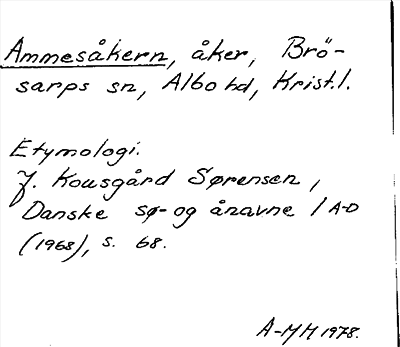 Ammesåkern, åker, Brö-
sarps sn, Albo hd, Krist.l.
Etymologi:
J. Kousgård Sørensen,
Danske sø- og ånavne 1 A-D
(1968), s. 68.
A-MH 1978.